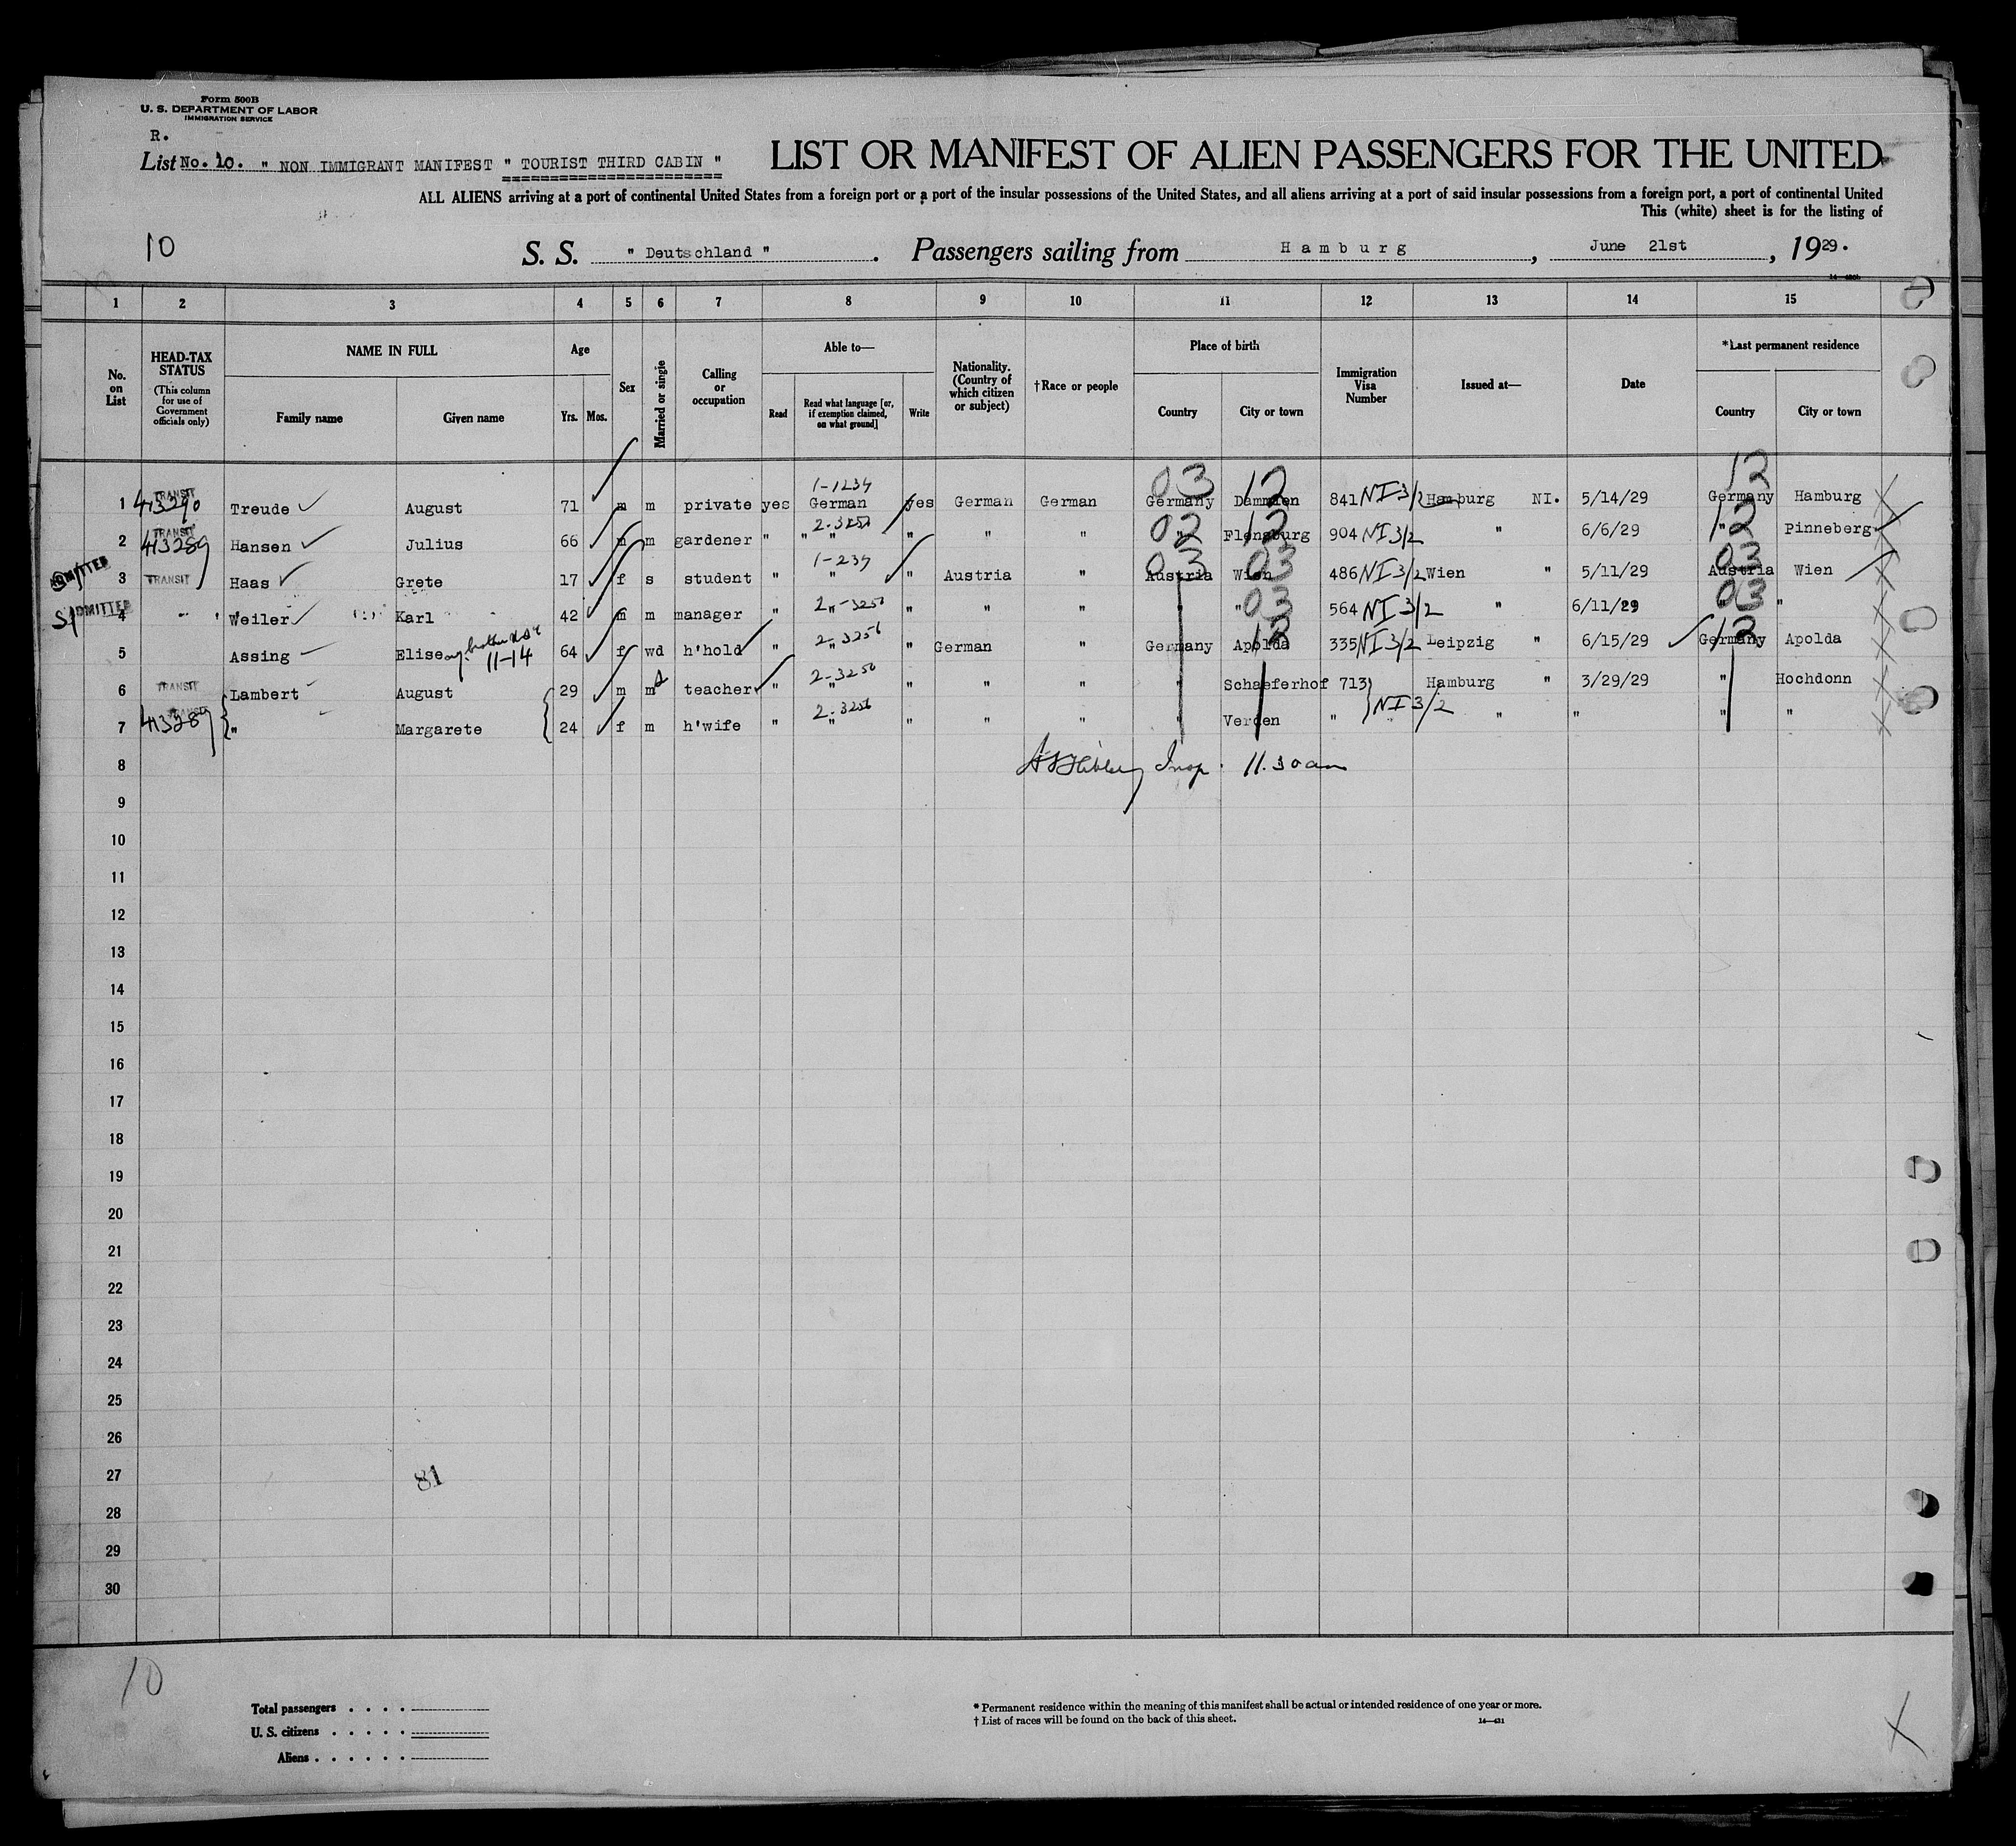 Form 500B
U. S. DEPARTMENT OF LABOR
IMMIGRATION SERVICE
R.
List No. 10. " NON IMMIGRANT MANIFEST " TOURIST THIRD CABIN "
LIST OR MANIFEST OF ALIEN PASSENGERS FOR THE UNITED
ALL ALIENS arriving at a port of continental United States from a foreign port or a port of the insular possessions of the United States, and all aliens arriving at a port of said insular possessions from a foreign port, a port of continental United
This (white) sheet is for the listing of
10
S. S. " Deutschland " . Passengers sailing from Hamburg , June 21st , 1929.
1 2 3 4 5 6 7 8 9 10 11 12 13 14 15
No. on List
HEAD-TAX STATUS (This column for use of Government officials only)
NAME IN FULL
Family name Given name
Age
Yrs. Mos.
Sex
Married or single
Calling or occupation
Able to—
Read
Read what language [or, if exemption claimed, on what ground]
Write
Nationality. (Country of which citizen or subject)
†Race or people
Place of birth
Country City or town
Immigration Visa Number
Issued at—
Date
*Last permanent residence
Country City or town
1-1234 03 12 12
1 TRANSIT 413290 Treude August 71 m m private yes German yes German German Germany Dammien 841 NI 3/2 Hamburg NI. 5/14/29 Germany Hamburg
2-3250 02 12 12
2 TRANSIT 413289 Hansen Julius 66 m m gardener " " " " " " " Flensburg 904 NI 3/2 " 6/6/29 " Pinneberg
1-234 03 03 03
ADMITTED 3 TRANSIT Haas Grete 17 f s student " " " Austria " Austria Wien 486 NI 3/2 Wien " 5/11/29 Austria Wien
2-3250 03 03
ADMITTED SI 4 Weiler Karl 42 m m manager " " " " " " " 564 NI 3/2 " 6/11/29 "
2-3256 12 12
5 Assing Elise 11-14 64 f wd h'hold " " " German " Germany Apolda 335 NI 3/2 Leipzig " 6/15/29 Germany Apolda
2-3250
6 TRANSIT Lambert August 29 m m teacher " " " " " " Schaeferhof 713 Hamburg " 3/29/29 " Hochdonn
2-3256
7 TRANSIT 413289 " Margarete 24 f m h'wife " " " " " " Verden " NI 3/2 " " " "
8 Insp. 11.30 am
9
10
11
12
13
14
15
16
17
18
19
20
21
22
23
24
25
26
27
81
28
29
30
10
Total passengers . . . .
U. S. citizens . . . . .
Aliens . . . . . .
* Permanent residence within the meaning of this manifest shall be actual or intended residence of one year or more.
† List of races will be found on the back of this sheet.
14—431